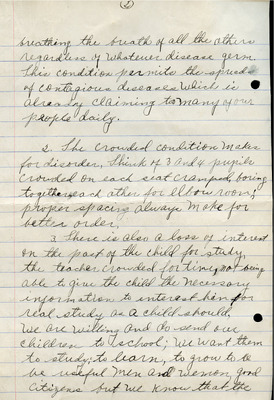 2
breathing the breath of all the others
regardless of whatever disease germ.
This condition permits the spread
of contagious diseases which is
already claiming to many of our
people daily.
2. The crowded condition makes
for disorder. Think of 3 and 4 pupils
crowded on each seat cramped, boring
together each other for elbow room;
proper spacing always make for
better order.
3 There is also a loss of interest
on the part of the child for study,
the teacher crowded for time, not being
able to give the child the necessary
information to interest him for
real study as a child should.
We are willing and do send our
children to school; We want them
to study; to learn, to grow to be
useful men and women, good
citizens but we know that the